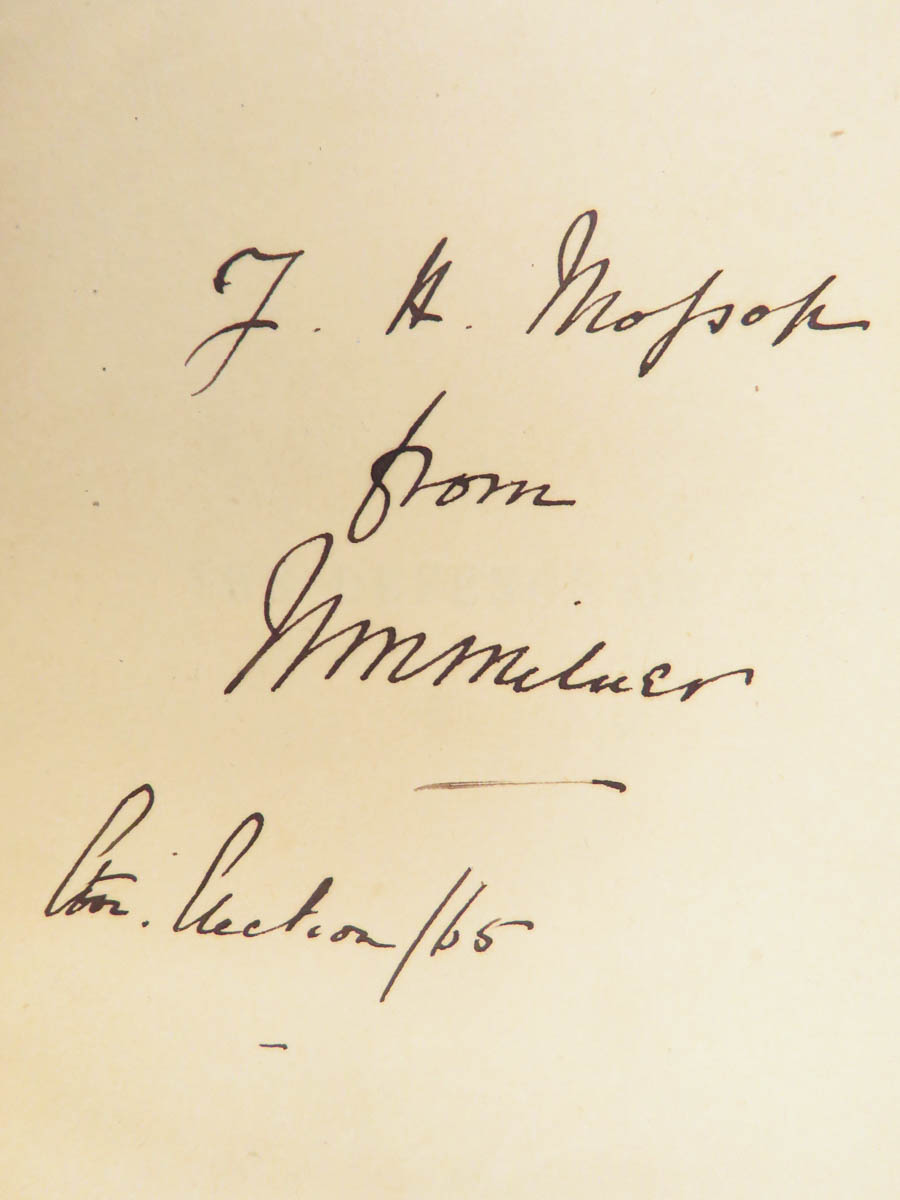 F. H. Mossop
from
Wm Milner
Election /65